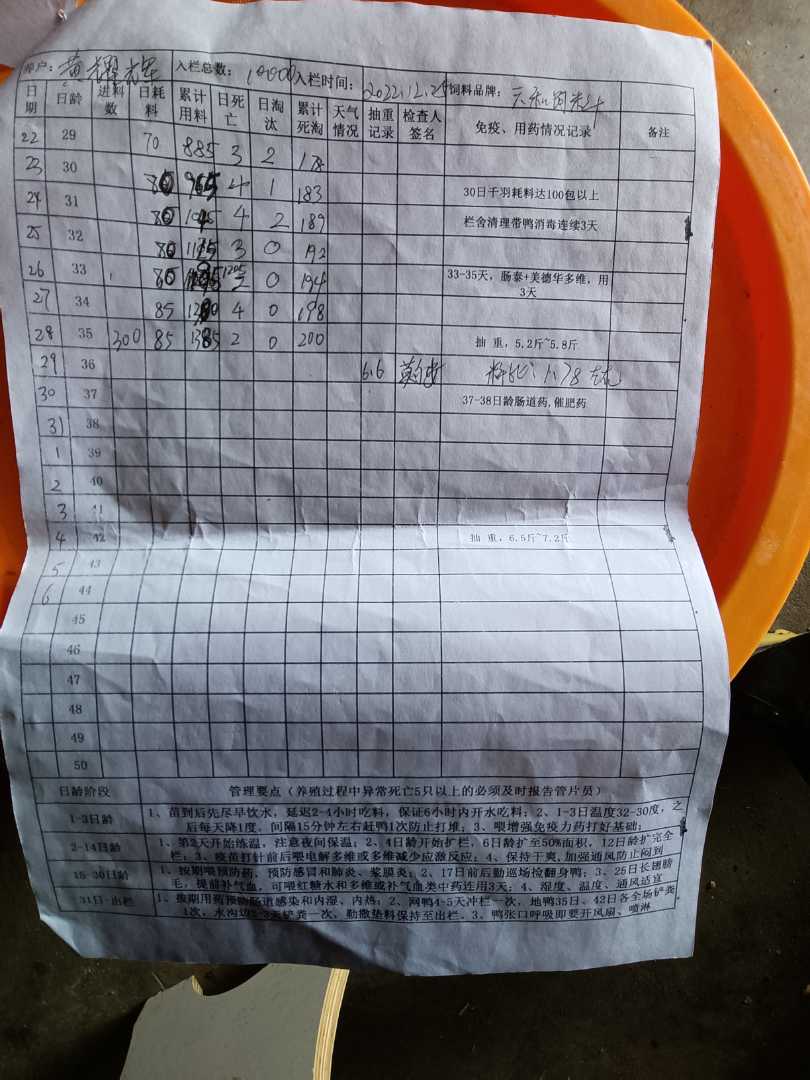 养户：黄耀辉 入栏总数：10000 入栏时间：2022.12.25 饲料品牌：
日期 日龄 进料数 日耗料 累计用料 日死亡 日淘汰 累计死淘 天气情况 抽重记录 检查人签名 免疫、用药情况记录 备注
22 29 70 885 3 2 178
23 30 80 965 4 1 183 30日千羽耗料达100包以上
24 31 80 1045 4 2 189 栏舍清理带鸭消毒连续3天
25 32 80 1125 3 0 192
26 33 80 1205 2 0 194 33-35天，肠泰+美德华多维，用3天
27 34 85 4 0 198
28 35 300 85 1385 2 0 200 抽 重，5.2斤~5.8斤
29 36 6.6 1.78
30 37 37-38日龄肠道药,催肥药
31 38
1 39
2 40
3 41
4 42 抽 重，6.5斤~7.2斤
5 43
6 44
45
46
47
48
49
50
日龄阶段 管理要点（养殖过程中异常死亡5只以上的必须及时报告管片员）
1-3日龄 1、苗到后先尽早饮水，延迟2-4小时吃料，保证6小时内开水吃料；2、1-3日温度32-30度，之
后每天降1度，间隔15分钟左右赶鸭1次防止打堆；3、喂增强免疫力药打好基础；
2-14日龄 1、第2天开始练温，注意夜间保温；2、4日龄开始扩栏，6日龄扩至50%面积，12日龄扩完全
栏；3、疫苗打针前后喂电解多维或多维减少应激反应；4、保持干爽,加强通风防止闷到
15-30日龄 1、按期喂预防药，预防感冒和肺炎、浆膜炎；2、17日前后勤巡场检翻身鸭；3、25日长翅膀
毛，提前补气血，可喂红糖水和多维或补气血类中药连用3天；4、湿度、温度、通风适宜
31日-出栏 1、按期用药预防肠道感染和内湿、内热；2、网鸭4-5天冲栏一次，地鸭35日、42日各全场铲粪
1次，水沟边2-3天铲粪一次，勤撒垫料保持至出栏。3、鸭张口呼吸即要开风扇、喷淋